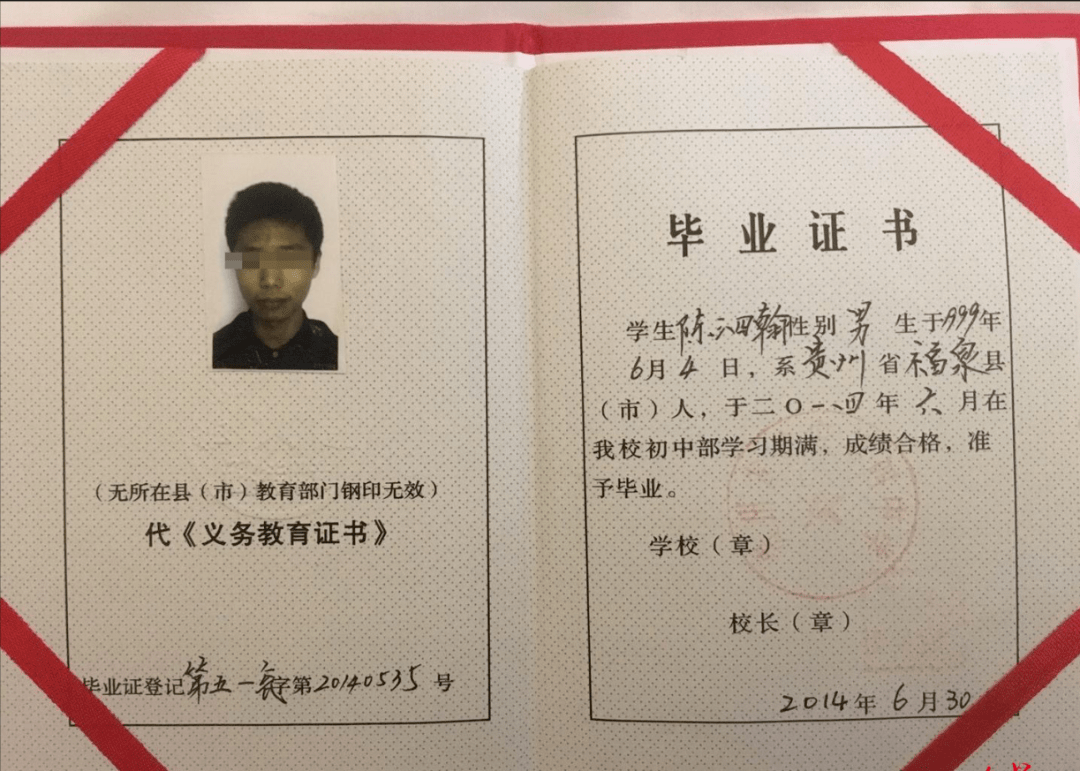 （无所在县（市）教育部门钢印无效）
代《义务教育证书》
毕业证登记第五一 字第20140535 号
毕业证书
学生陈泗翰性别 男 生于1999年
6月 4 日，系贵州省福泉县
（市）人，于二〇一四年 六 月在
我校初中部学习期满，成绩合格，准
予毕业。
学校（章）
校长（章）
2014年 6月30